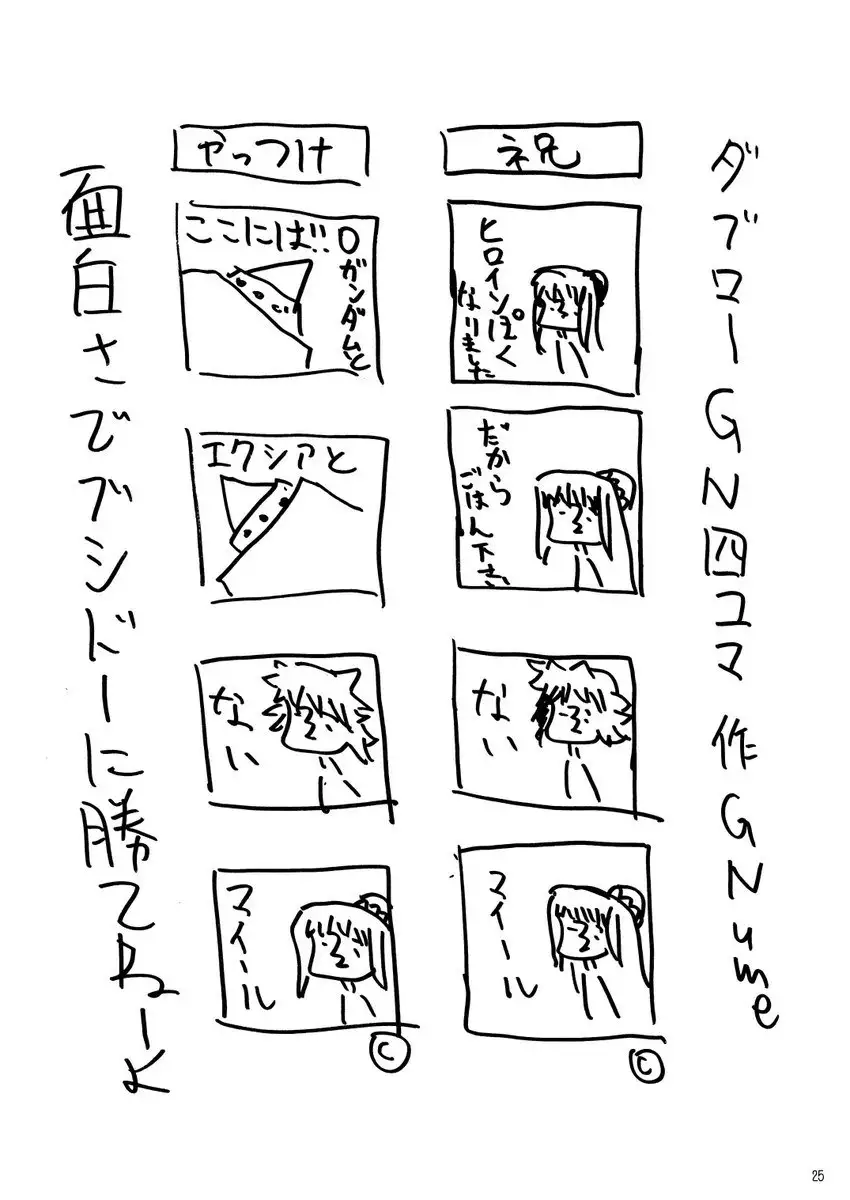 ダブローGN四コマ 作GNume
祝
ヒロインぽく
なりました
だから
ごはん下さい
ない
マイール
©
やっつけ
ここには!!
Oガンダムと
エクシアと
ない
マイール
©
面白さでブシドーに勝てねーよ
25